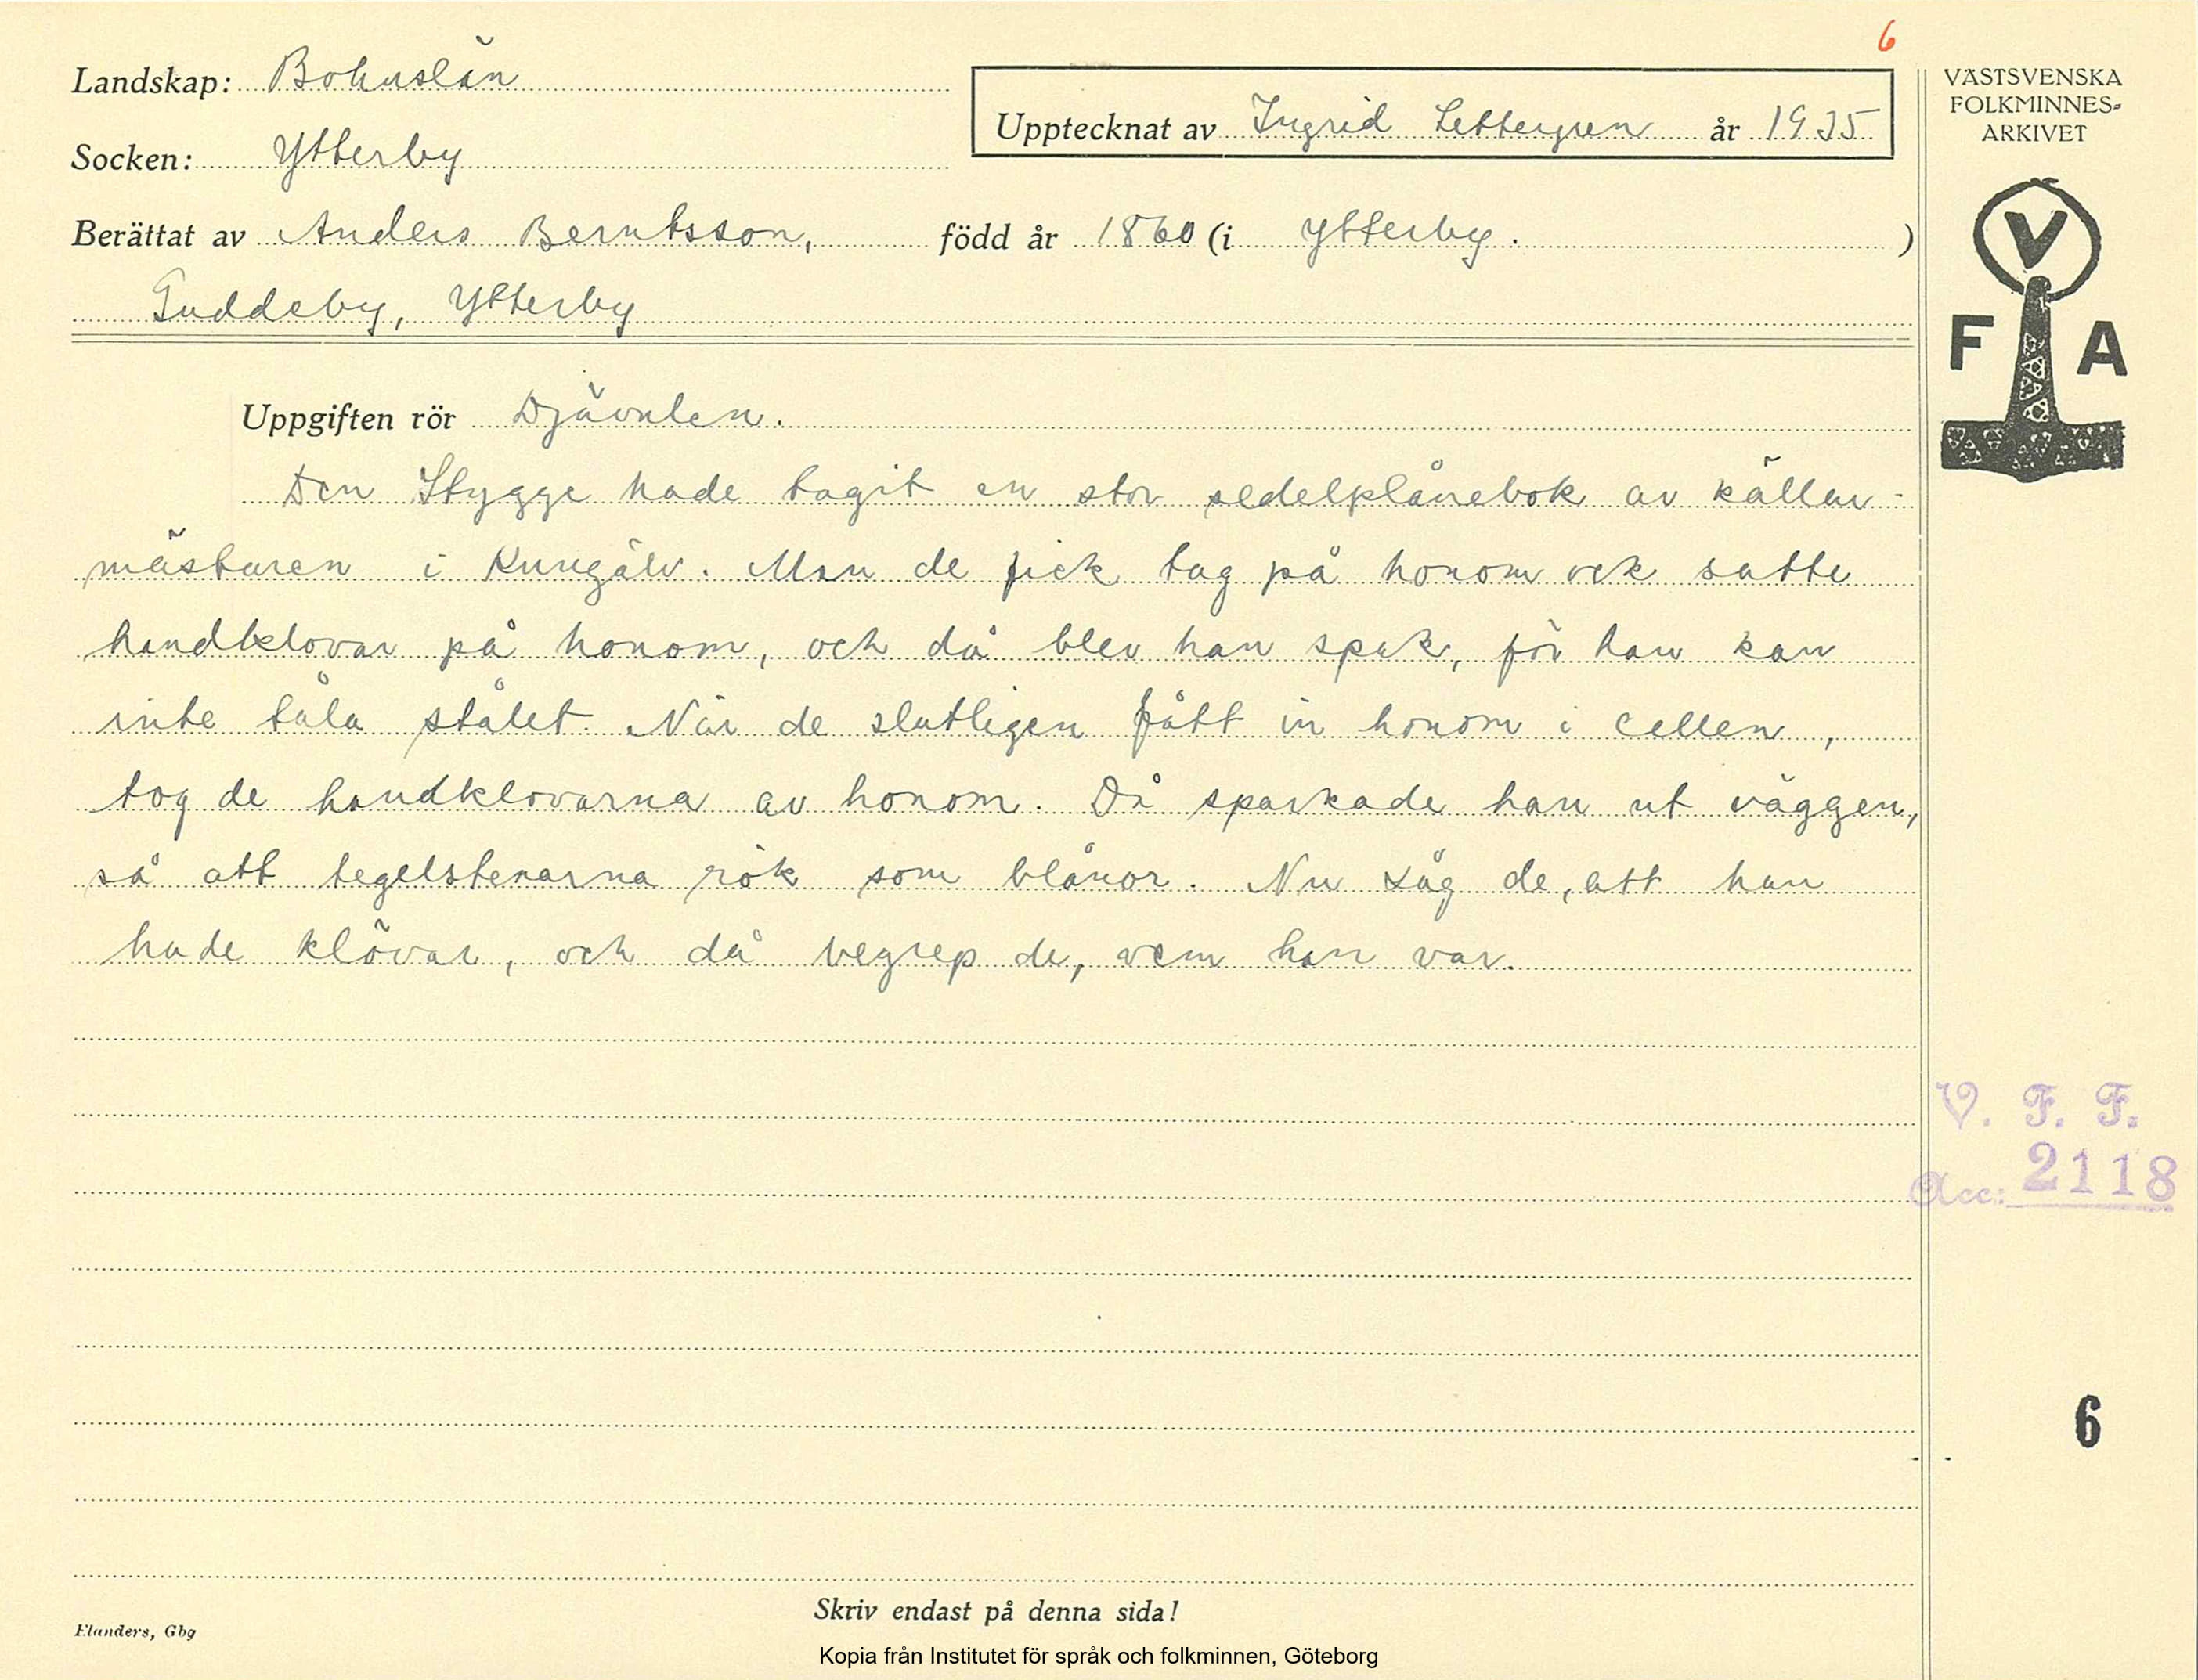 6
Landskap: Bohuslän
Socken: Ytterby
Upptecknat av Ingrid Settergren år 1935
Berättat av Anders Berntsson, född år 1860 (i Ytterby. )
Guddeby, Ytterby
VÄSTSVENSKA
FOLKMINNES-
ARKIVET
V
F A
Uppgiften rör Djävulen.
Den Stygge hade tagit en stor sedelplånebok av källar-
mästaren i Kungälv. Man de fick tag på honom ock satte
handklovar på honom, och då blev han spak, för han kan
inte tåla stålet. När de slutligen fått in honom i cellen,
tog de handklovarna av honom. Då sparkade han ut väggen,
så att tegelstenarna rök som blånor. Nu såg de, att han
hade klövar, och då begrep de, vem han var.
V. F. F.
Acc: 2118
6
Skriv endast på denna sida!
Elanders, Gbg
Kopia från Institutet för språk och folkminnen, Göteborg